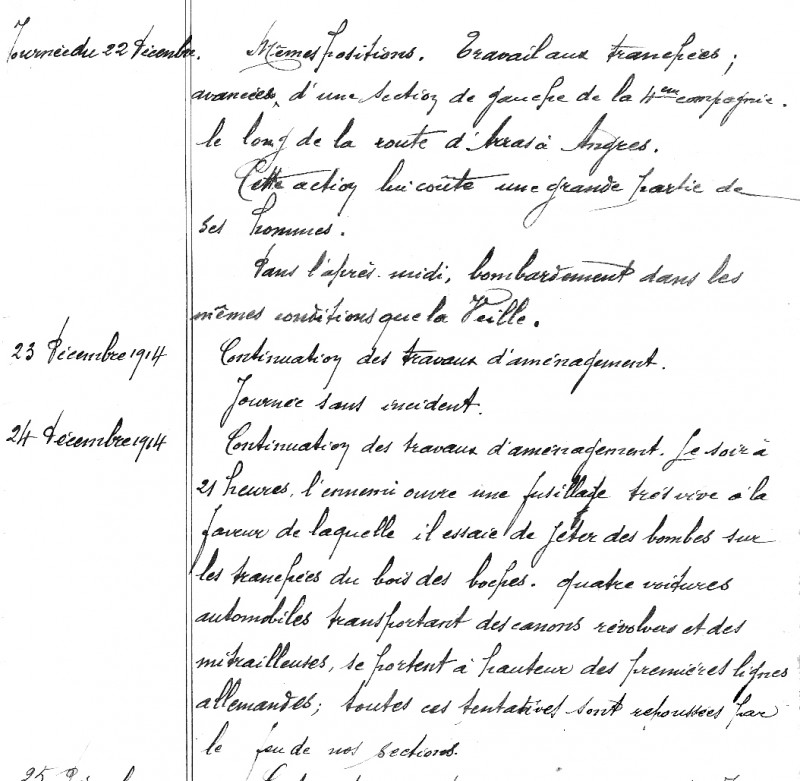 Journée du 22 Décembre. Mêmes positions. Travail aux tranchées ;
avancées, d'une section de gauche de la 4em compagnie.
le long de la route d'Arras à Angres.
Cette action lui coûte une grande partie de
ses hommes.
Dans l'après-midi, bombardement dans les
mêmes conditions que la Veille.
23 Décembre 1914 Continuation des travaux d'aménagement.
Journée sans incident.
24 Décembre 1914 Continuation des travaux d'aménagement. Le soir à
21 heures, l'ennemi ouvre une fusillade très vive à la
faveur de laquelle il essaie de jeter des bombes sur
les tranchées du bois des boches. quatre voitures
automobiles transportant des canons révolvers et des
mitrailleuses, se portent à hauteur des premières lignes
allemandes ; toutes ces tentatives sont repoussées par
le feu de nos sections.
25